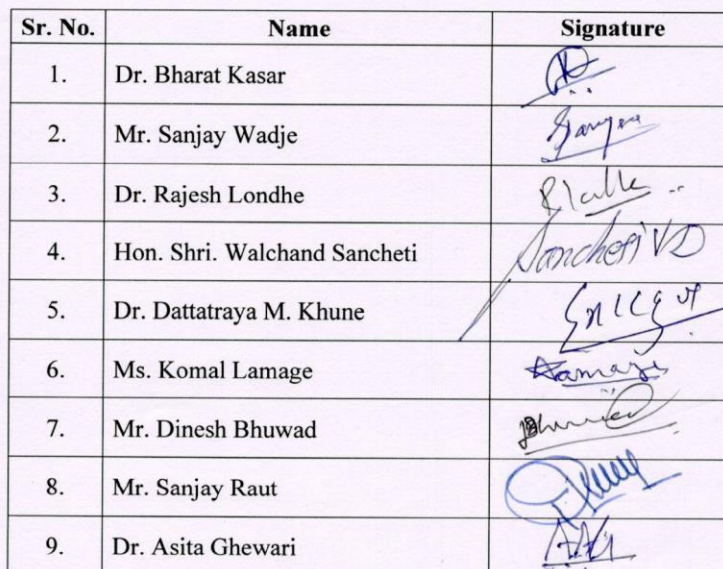 Sr. No. Name Signature
1. Dr. Bharat Kasar
2. Mr. Sanjay Wadje
3. Dr. Rajesh Londhe
4. Hon. Shri. Walchand Sancheti Sancheti VD
5. Dr. Dattatraya M. Khune
6. Ms. Komal Lamage
7. Mr. Dinesh Bhuwad
8. Mr. Sanjay Raut
9. Dr. Asita Ghewari